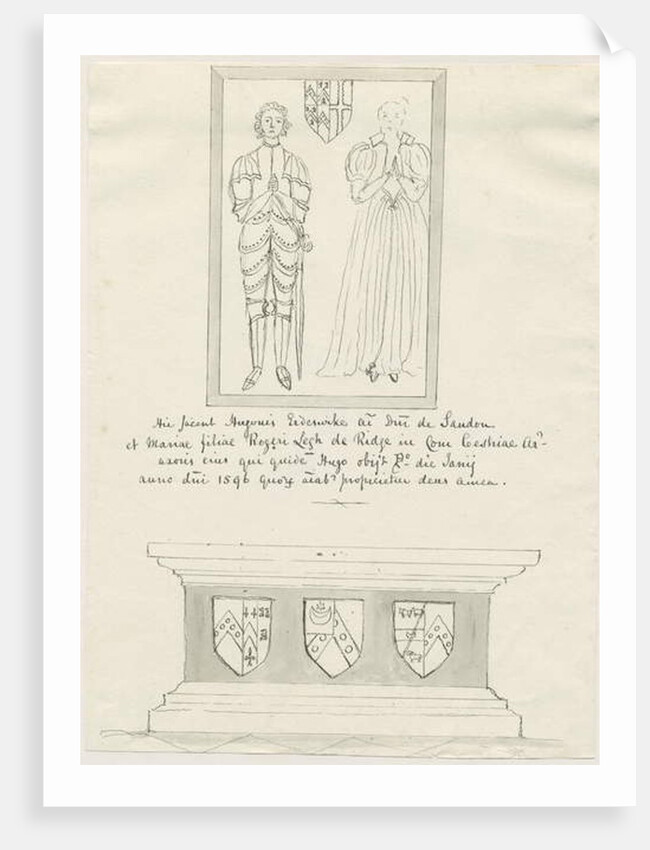 Hic Jacent Hugonis Erdeswike Ar̃ Dn̄i de Sandon
et Mariae filiae Rogeri Legh de Ridge in Com Cestriae Arr̃-
uxoris eius qui quidē Hugo obijt die Junij
anno dn̄i 1596 quoꝝ propicietur deus amen.